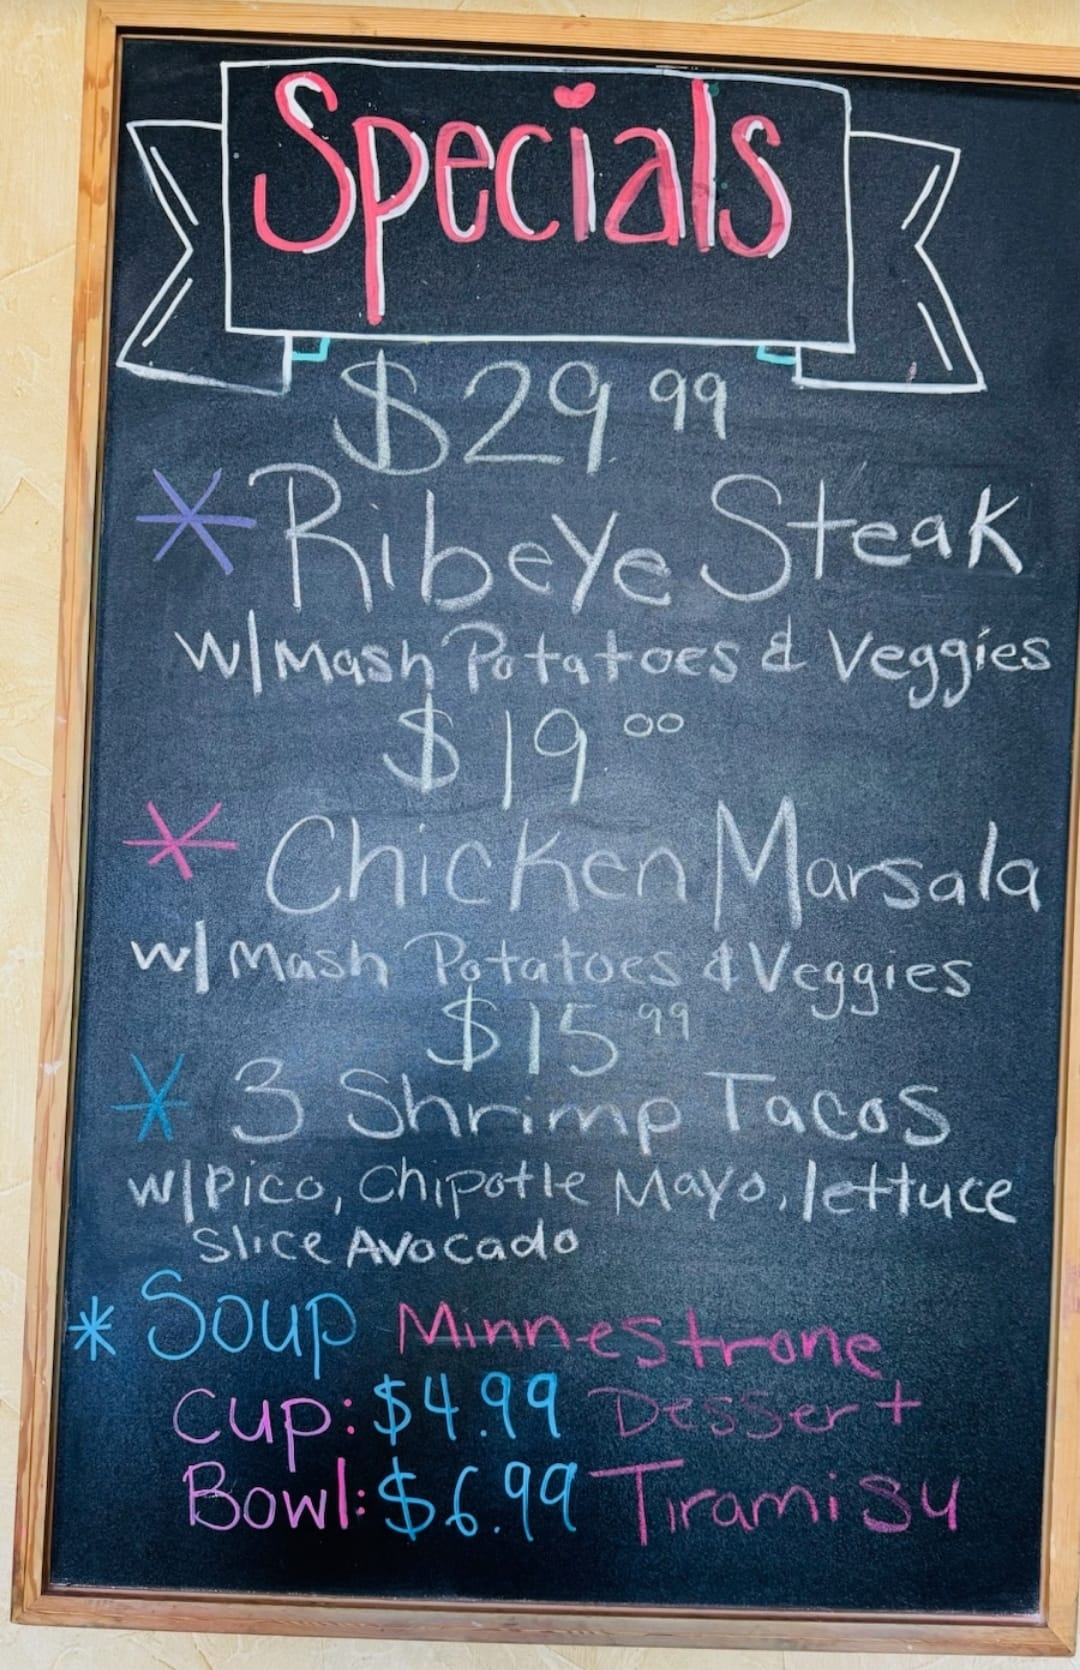 Specials
$29 99
* Ribeye Steak
W/Mash Potatoes & Veggies
$19 00
* Chicken Marsala
w/ Mash Potatoes & Veggies
$15 99
* 3 Shrimp Tacos
w/Pico, Chipotle Mayo, lettuce
Slice Avocado
* Soup Minnestrone
Cup: $4.99 Dessert
Bowl: $6.99 Tiramisu